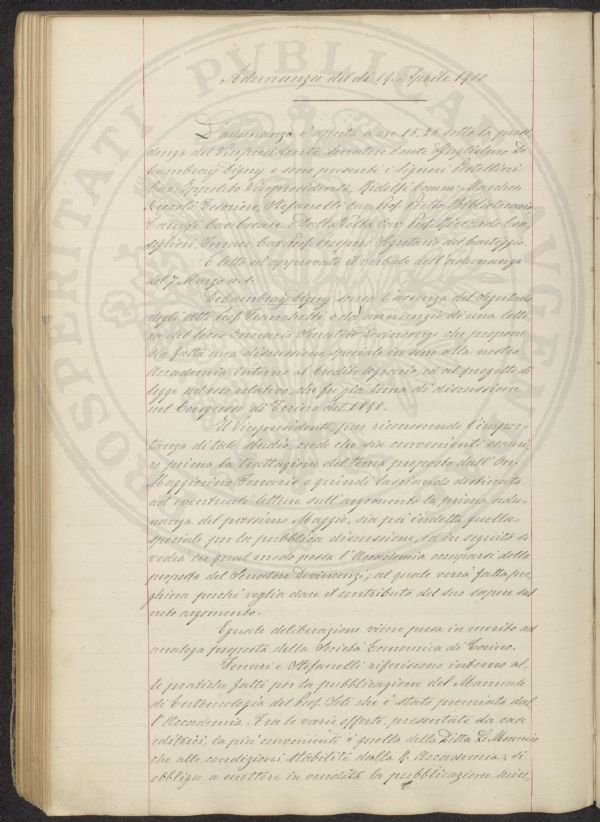 Adunanza del dì 19. Aprile 1900
L'adunanza è aperta a ore 15,25 sotto la presi¬
denza del Vicepresidente Senatore Conte Guglielmo De
Cambray Digny e sono presenti i Signori Pestellini
Cav. Ippolito Vicepresidente, Ridolfi Comm. Marchese
Niccolò Tesoriere, Stefanelli Cav. Prof. Pietro Bibliotecario
Caruso Cav. e Dalla Volta Cav. Prof. Riccardo Con¬
siglieri, Ferrari Cav. Prof. Segretario del Carteggio.
È letto ed approvato il verbale dell'adunanza
del 7 Marzo u. s.
De Cambray Digny scusa l'assenza del Segretario
degli Atti Prof. Franchetti e dà annunzio di una lette¬
ra del Socio Onorario Senatore Devincenzi che propone
sia fatta una discussione speciale in seno alla nostra
Accademia intorno al Credito agrario, ed al progetto di
legge ad esso relativo, che fu già tema di discussione
nel Congresso di Torino del 1898.
Il Vicepresidente, pur riconoscendo l'impor¬
tanza di tale studio, crede che sia conveniente esauri¬
re prima la trattazione del tema proposto dall'On.
Maggiorino Ferraris e quindi lasciando destinata
ad eventuali letture sull'argomento la prima adu¬
nanza del prossimo Maggio, sia poi indetta quella
speciale per la pubblica discussione, ed in seguito si
vedrà in qual modo possa l'Accademia occuparsi della
proposta del Senatore Devincenzi, al quale verrà fatta pre¬
ghiera perchè voglia dare il contributo del suo sapere sul
noto argomento.
Eguale deliberazione viene presa in merito ad
analoga proposta della Società Economica di Torino.
Ferrari e Stefanelli riferiscono intorno al¬
le pratiche fatte per la pubblicazione del Manuale
di Entomologia del Prof. che è stato premiato dal¬
l'Accademia. Fra le varie offerte presentate da case
editrici, la più conveniente è quella della Ditta Le Monnier
che alle condizioni stabilite dalla R. Accademia, si
obbliga a mettere in vendita la pubblicazione
PROSPERITATI PUBLICAE AUGENDAE